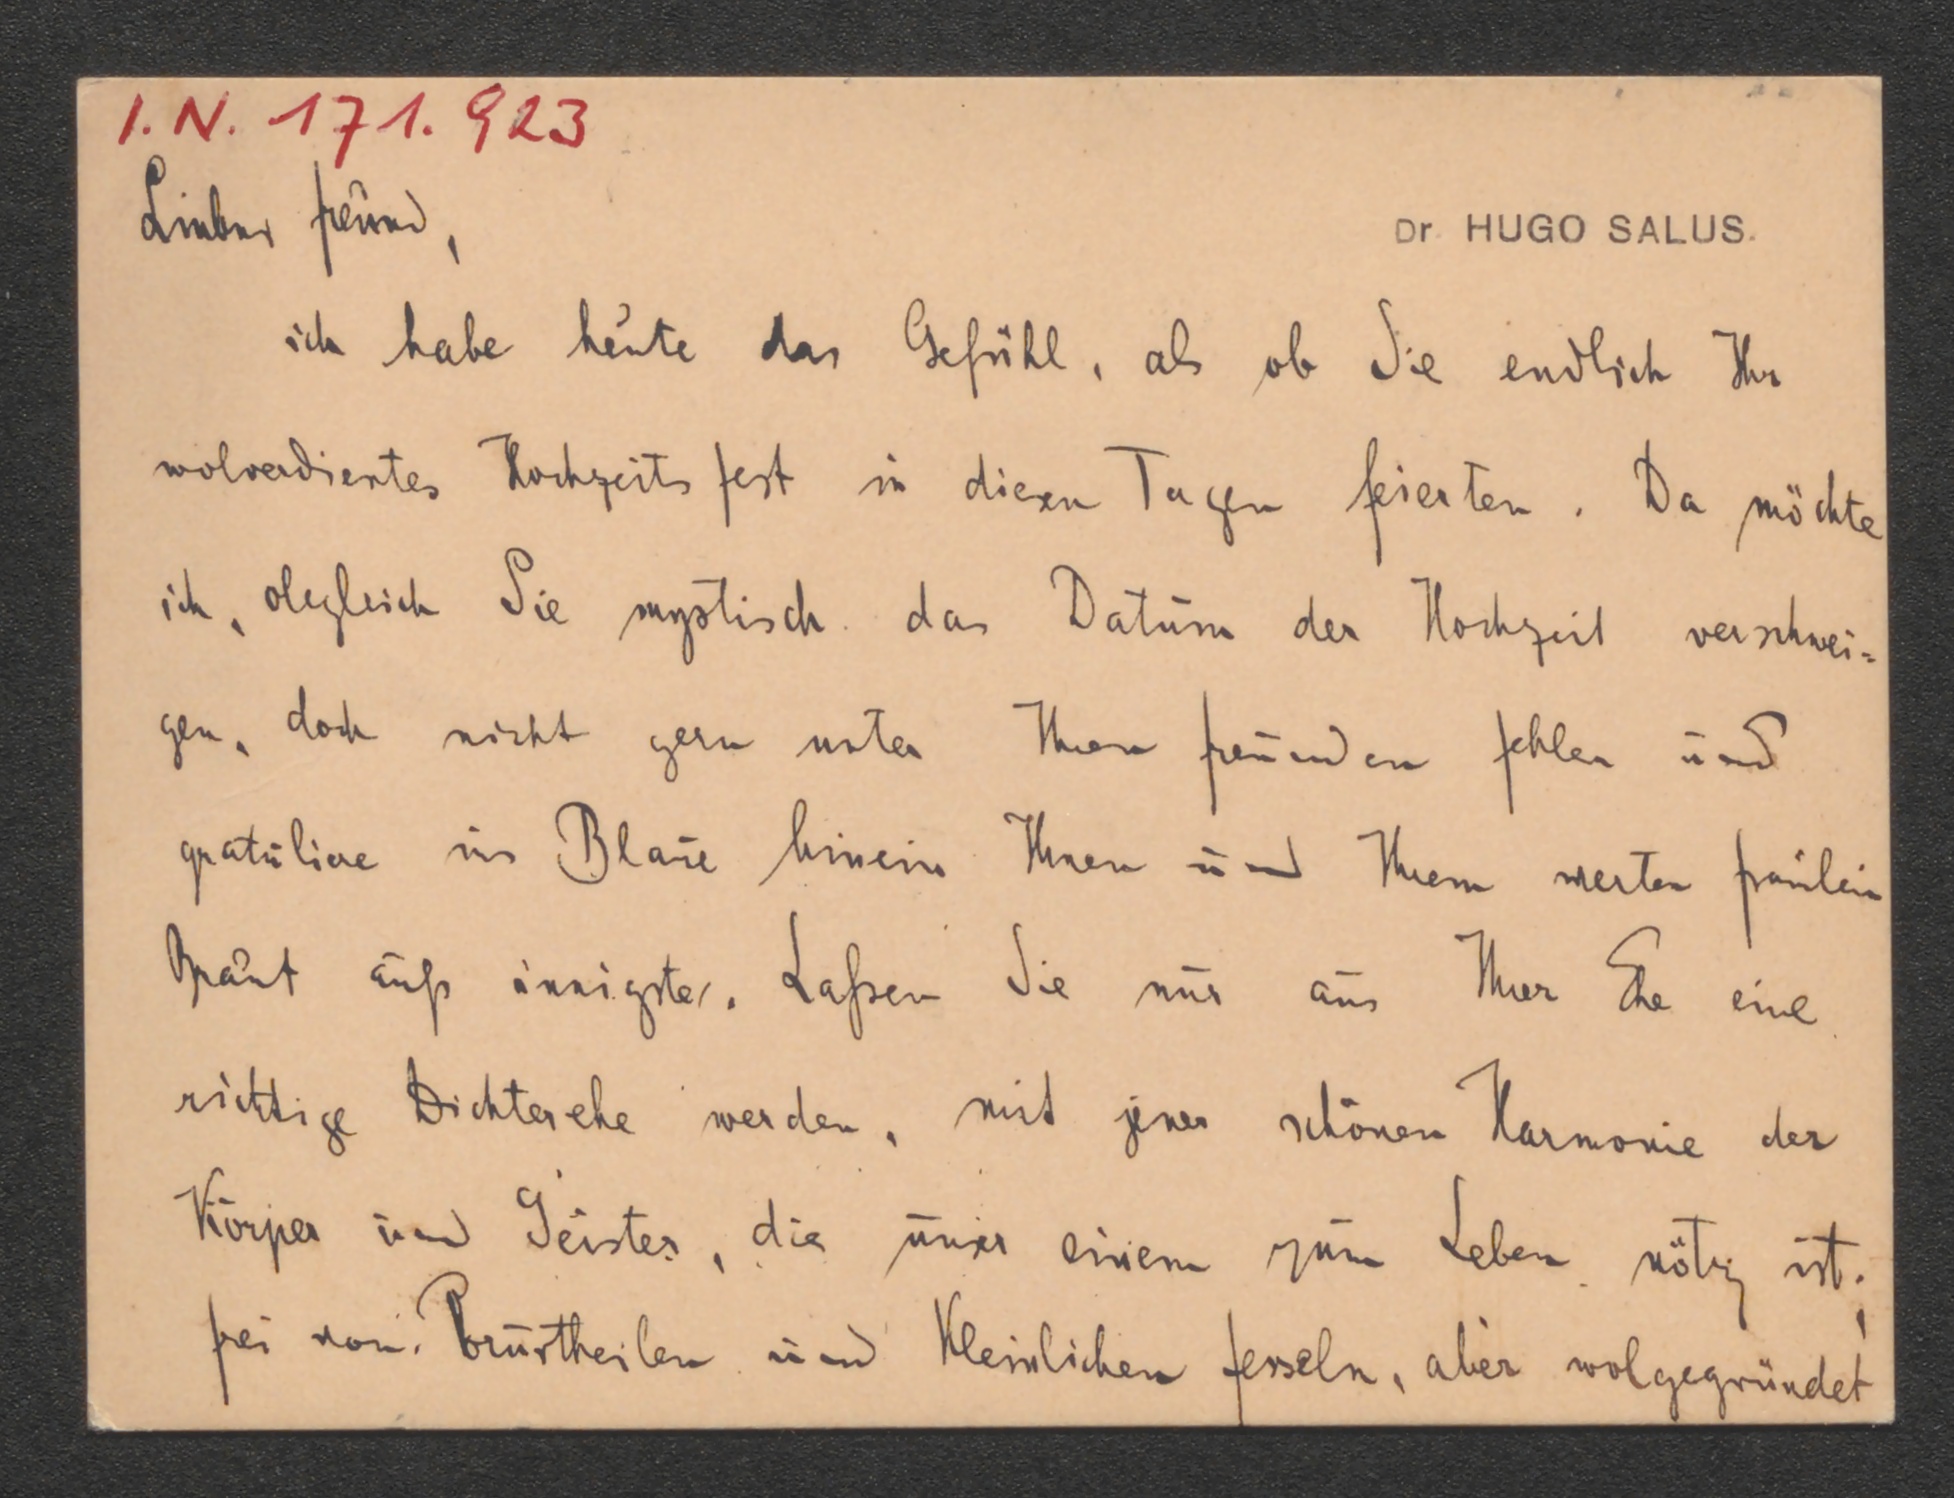 I.N. 171.923
Lieber Freund,
Dr. HUGO SALUS.
ich habe heute das Gefühl, als ob Sie endlich Ihr
wolverdientes Hochzeitsfest in diesen Tagen feierten. Da möchte
ich, obgleich Sie mystisch das Datum der Hochzeit verschwei-
gen, doch nicht gern unter Ihren Freunden fehlen und
gratuliere ins Blaue hinein Ihnen und Ihrem werten Fräulein
Braut aufs innigste. Laßen Sie nur aus Ihrer Ehe eine
richtige Dichterehe werden, mit jener schönen Harmonie der
Körper und Geister, die unser einem zum Leben nötig ist;
frei von Vorurtheilen und Kleinlichen Fesseln, aber wolgegründet